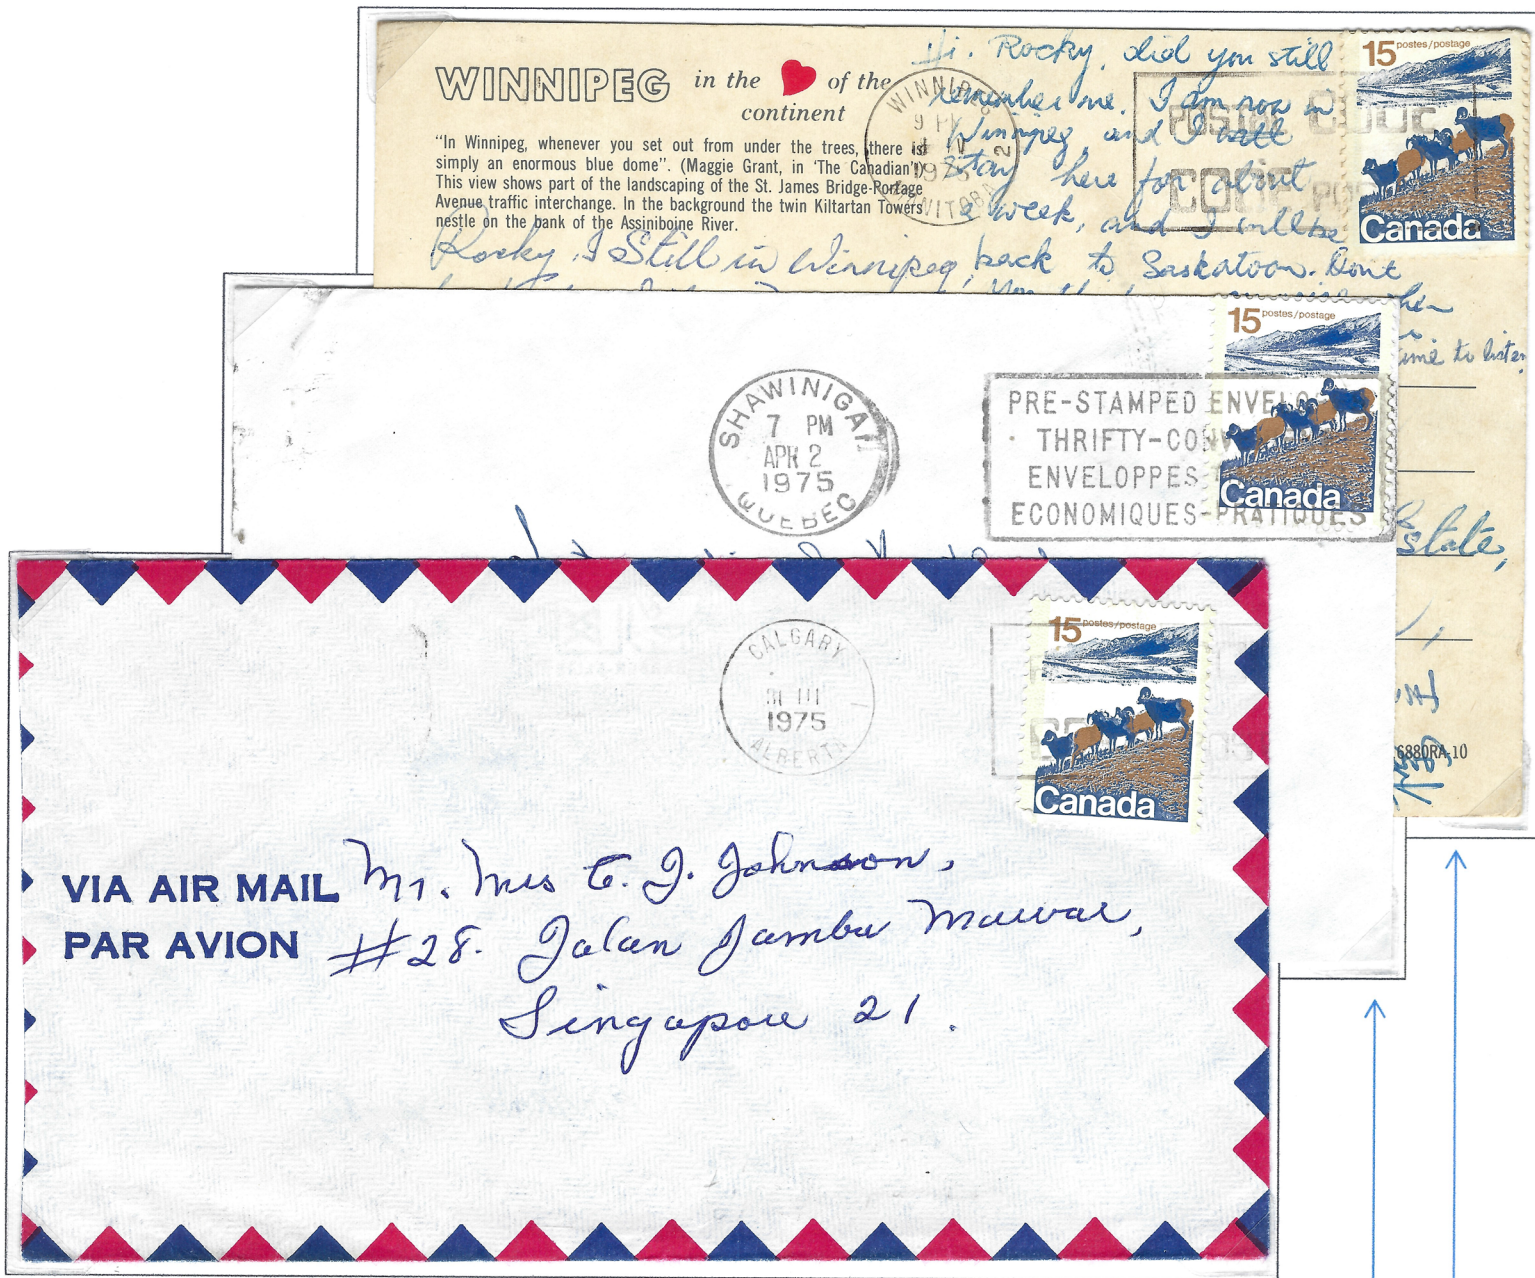 WINNIPEG in the of the
continent
"In Winnipeg, whenever you set out from under the trees, there is
simply an enormous blue dome". (Maggie Grant, in 'The Canadian')
This view shows part of the landscaping of the St. James Bridge-Portage
Avenue traffic interchange. In the background the twin Kiltartan Towers
nestle on the bank of the Assiniboine River.
Hi. Rocky, did you still
remember me. I am now in
Winnipeg, and I will
stay here for about
a week, and I will be
back to Saskatoon. Dont
Rocky, I Still in Winnipeg,
time to listen
State,
6880RA-10
WINNIPEG
9 PM
IV
1975
MANITOBA
2
POSTAL CODE
CODE POSTAL
15 postes/postage
Canada
SHAWINIGAN
7 PM
APR 2
1975
QUEBEC
PRE-STAMPED ENVELO
THRIFTY-CONV
ENVELOPPES
ECONOMIQUES-PRATIQUES
15 postes/postage
Canada
CALGARY
31 III
1975
ALBERTA
15 postes/postage
Canada
VIA AIR MAIL
PAR AVION
Mr. Mrs C. J. Johnson,
#28. Jalan Jambu Mawar,
Singapore 21.